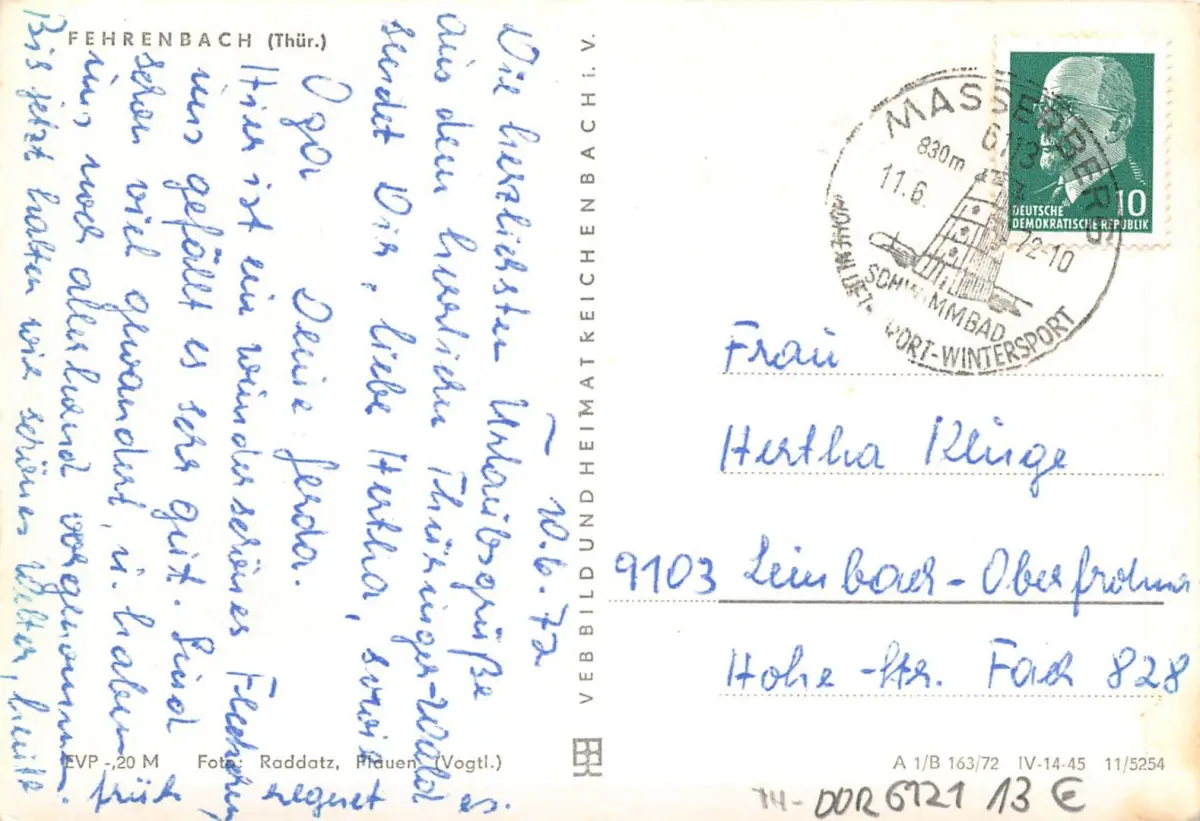 FEHRENBACH (Thür.)
10.6.72
Die herzlichsten Urlaubsgrüße
aus dem herrlichen Thüringer-Wald
sendet Dir, liebe Hertha, sowie
Deine Gerda.
Hier ist ein wunderschönes Fleckchen
uns gefällt es sehr gut. Sind
schon viel gewandert, u. haben
uns noch allerhand vorgenommen.
Bis jetzt hatten wir schönes Wetter, heute
früh regnet es.
VEB BILD UND HEIMAT REICHENBACH i. V.
EVP -,20 M Foto: Raddatz, Plauen (Vogtl.)
MASSERBERG
6113
830m
11.6.72-10
SCHWIMMBAD
HÖHENLUFT-SPORT-WINTERSPORT
10
DEUTSCHE
DEMOKRATISCHE REPUBLIK
Frau
Hertha Kluge
9103 Limbach-Oberfrohna
Hohe-Str. Fach 828
A 1/B 163/72 IV-14-45 11/5254
TH-DDR6121 13 €